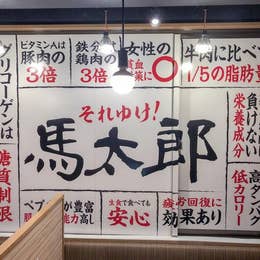 ビタミンAは
豚肉の
3倍
鉄分
鶏肉の
3倍
女性の
貧血
〇
牛肉に比べ
1/5の脂肪量
グリコーゲンは
糖質制限
それゆけ!
馬太郎
負けない
栄養成分
高タンパク
低カロリー
ペプ
が豊富
能力高し
生食で食べても
安心
疲労回復に
効果あり